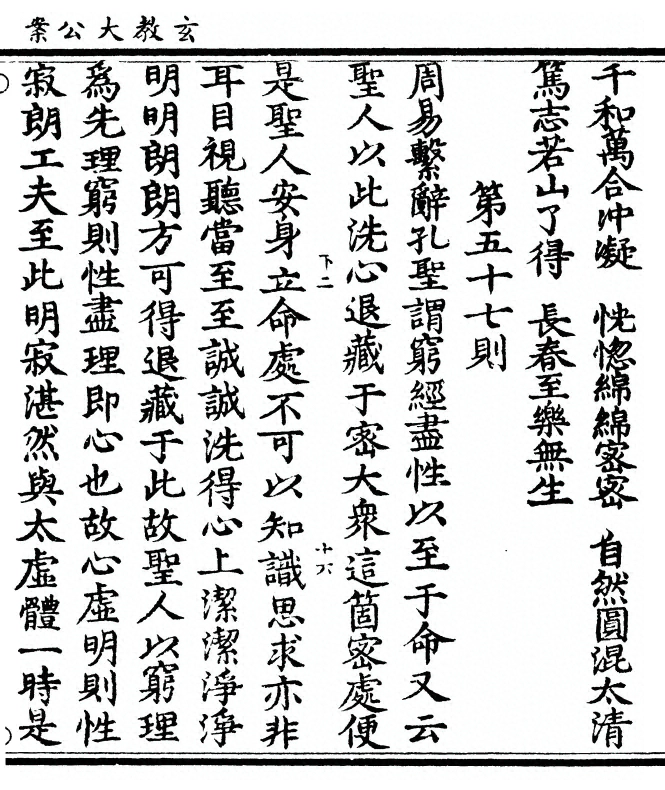 玄教大公案
千和萬合沖凝　恍惚綿綿密密　自然圓混太清
篤志若山了得　長春至樂無生
第五十七則
周易繫辭孔聖謂窮經盡性以至于命又云
聖人以此洗心退藏于密大衆這箇密處便
下二　十六
是聖人安身立命處不可以知識思求亦非
耳目視聽當至至誠誠洗得心上潔潔淨淨
明明朗朗方可得退藏于此故聖人以窮理
爲先理窮則性盡理即心也故心虛明則性
寂朗工夫至此明寂湛然與太虛體一時是